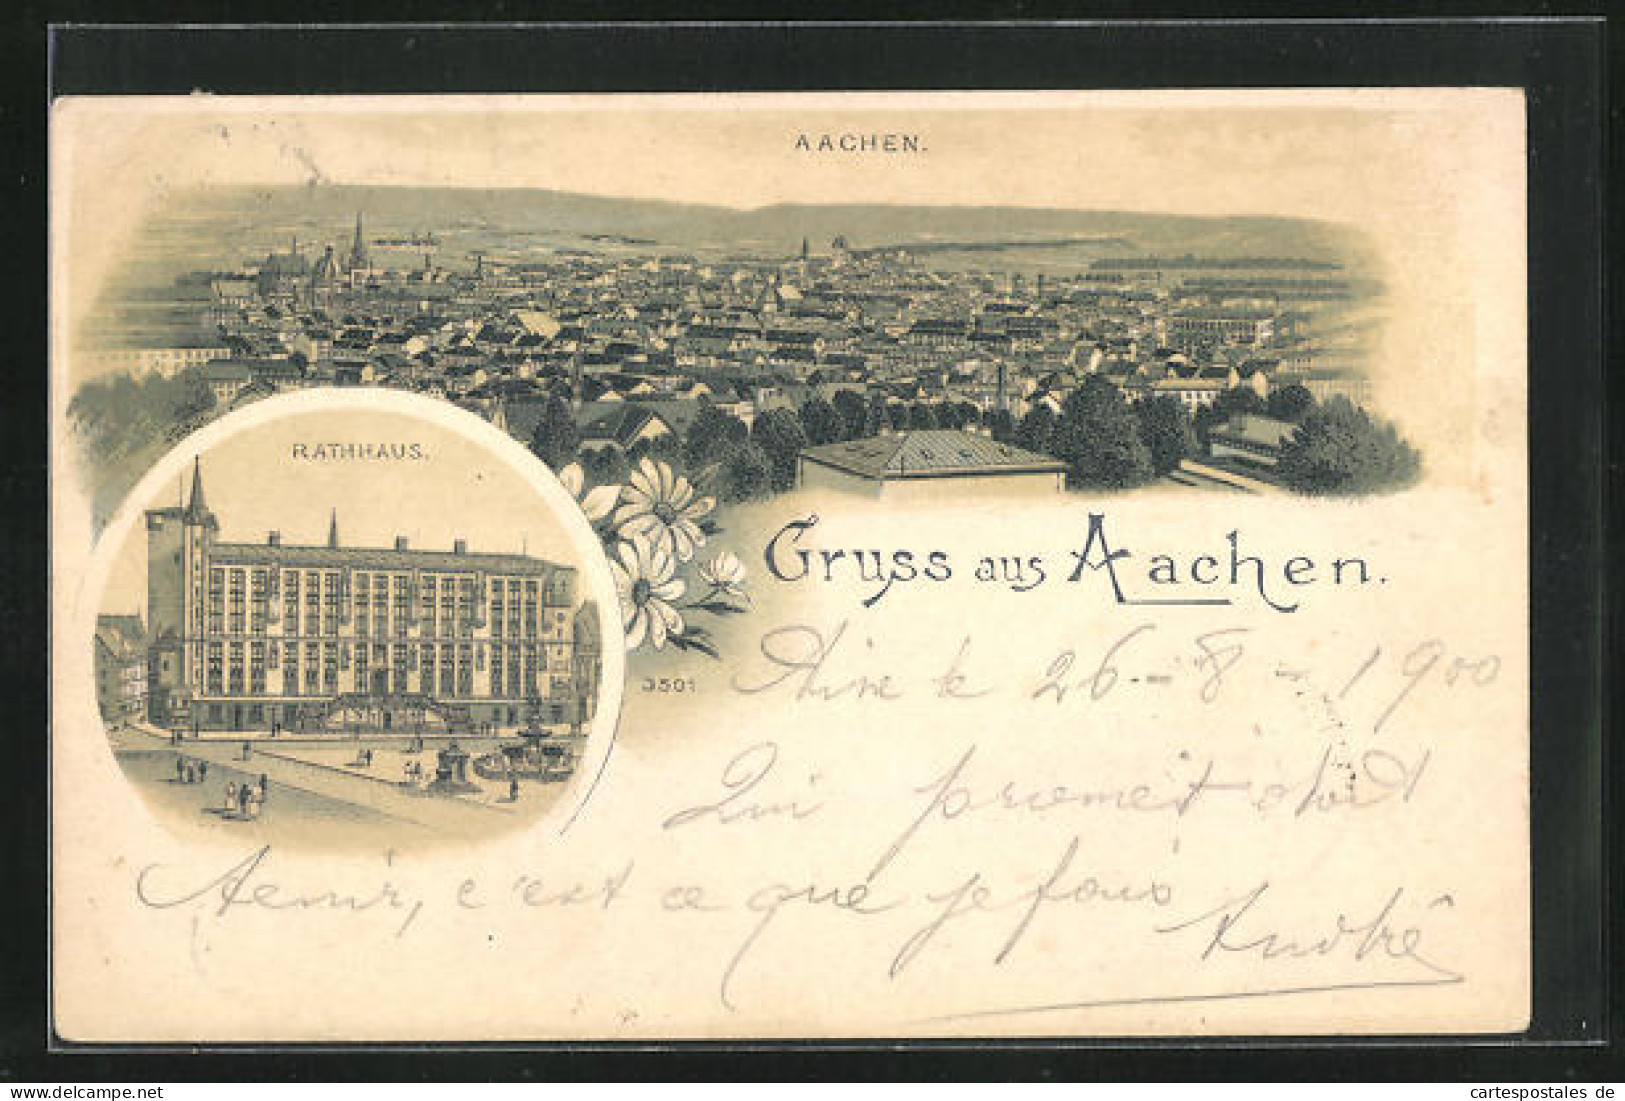 AACHEN.
RATHHAUS.
Gruss aus Aachen.
3501
le 26-8-1900
Qui promet doit
tenir, c'est ce que je fais
André
cartespostales de